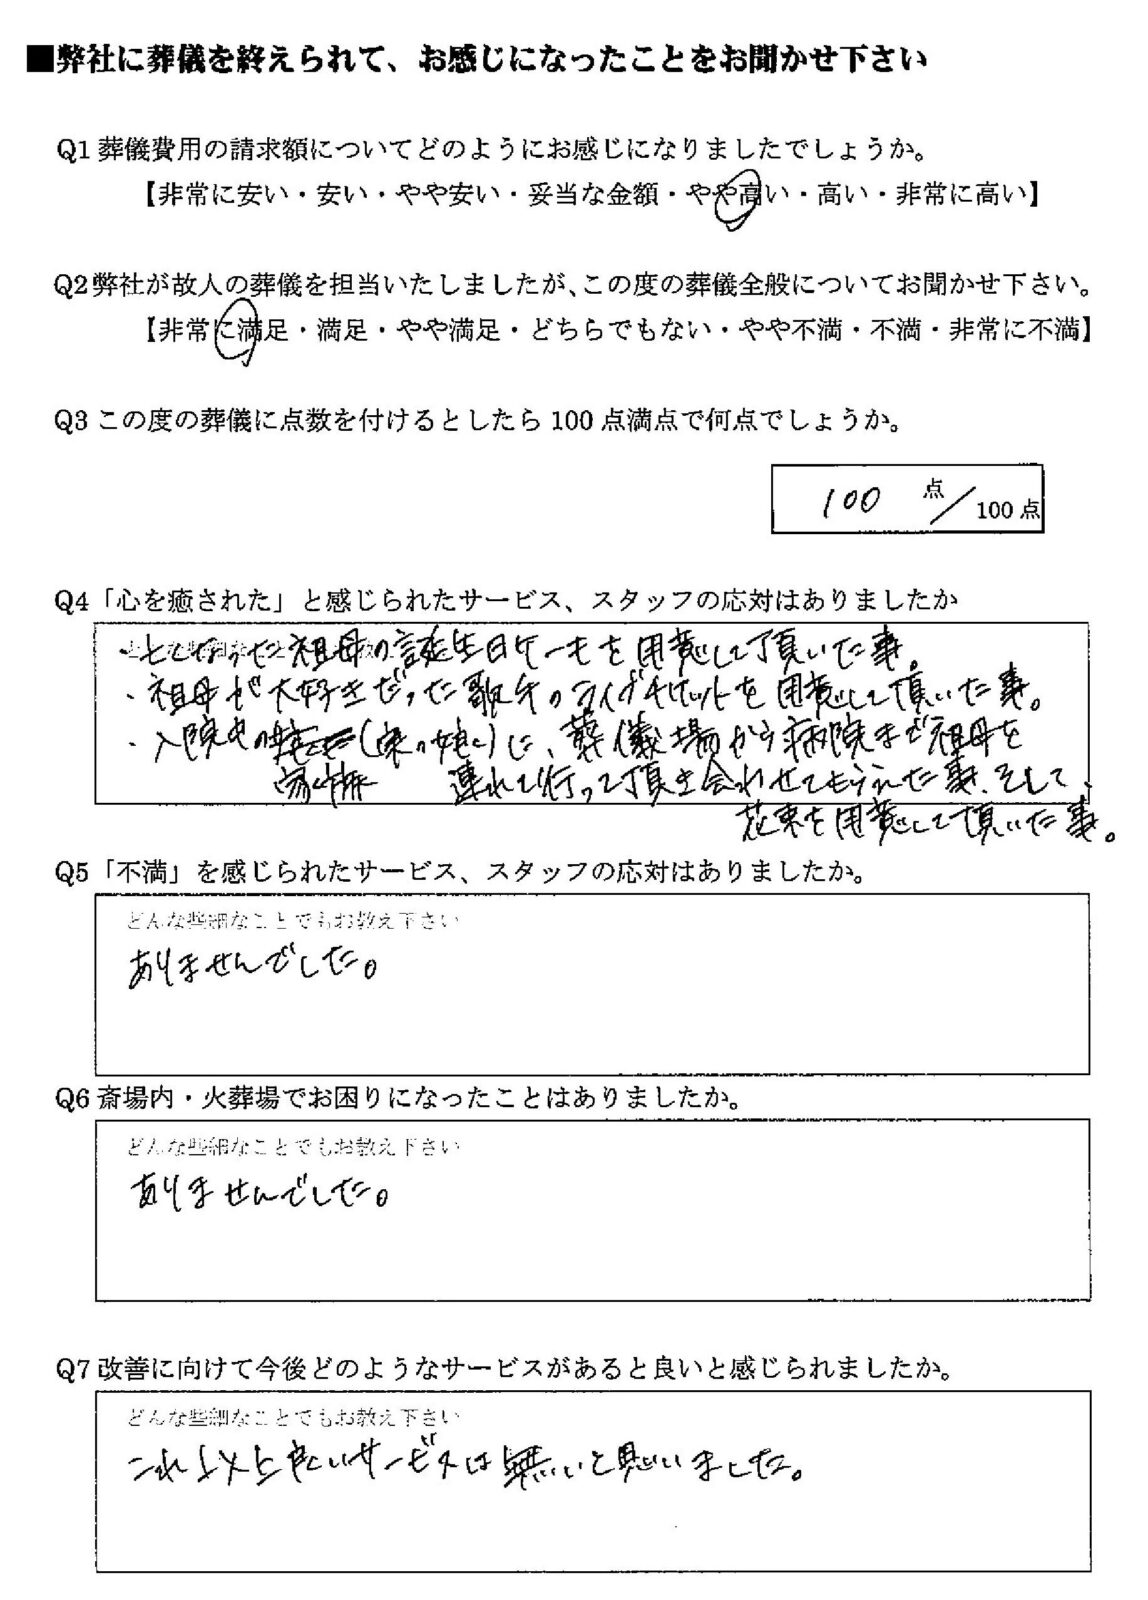 ■弊社に葬儀を終えられて、お感じになったことをお聞かせ下さい
Q1 葬儀費用の請求額についてどのようにお感じになりましたでしょうか。
【非常に安い・安い・やや安い・妥当な金額・やや高い・高い・非常に高い】
Q2 弊社が故人の葬儀を担当いたしましたが、この度の葬儀全般についてお聞かせ下さい。
【非常に満足・満足・やや満足・どちらでもない・やや不満・不満・非常に不満】
Q3 この度の葬儀に点数を付けるとしたら 100 点満点で何点でしょうか。
100 点／100 点
Q4「心を癒された」と感じられたサービス、スタッフの応対はありましたか
・亡くなった祖母の誕生日ケーキを用意して頂いた事。
・祖母が大好きだった歌手のライブチケットを用意して頂いた事。
・入院中の(の娘)に、葬儀場から病院まで祖母を
連れて行って頂き会わせてもらえた事、そして、
花束を用意して頂いた事。
Q5「不満」を感じられたサービス、スタッフの応対はありましたか。
どんな些細なことでもお教え下さい
ありませんでした。
Q6 斎場内・火葬場でお困りになったことはありましたか。
どんな些細なことでもお教え下さい
ありませんでした。
Q7 改善に向けて今後どのようなサービスがあると良いと感じられましたか。
どんな些細なことでもお教え下さい
これ以上良いサービスは無いと思いました。